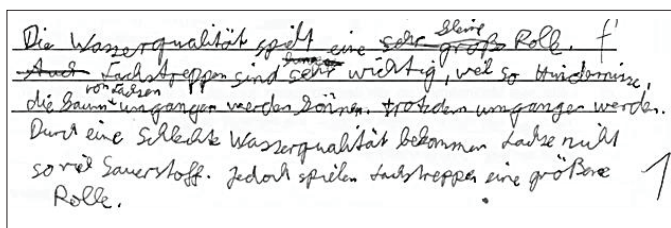 Die Wasserqualität spielt eine sehr kleine große Rolle. f
Auch Lachstreppen sind sehr wichtig, weil so Hindernisse,
die kaum von Lachsen umgangen werden können. trotzdem umgangen werden.
Durch eine schlechte Wasserqualität bekommen Lachse nicht
so viel Sauerstoff. Jedoch spielen Lachstreppen eine größere
Rolle. 1